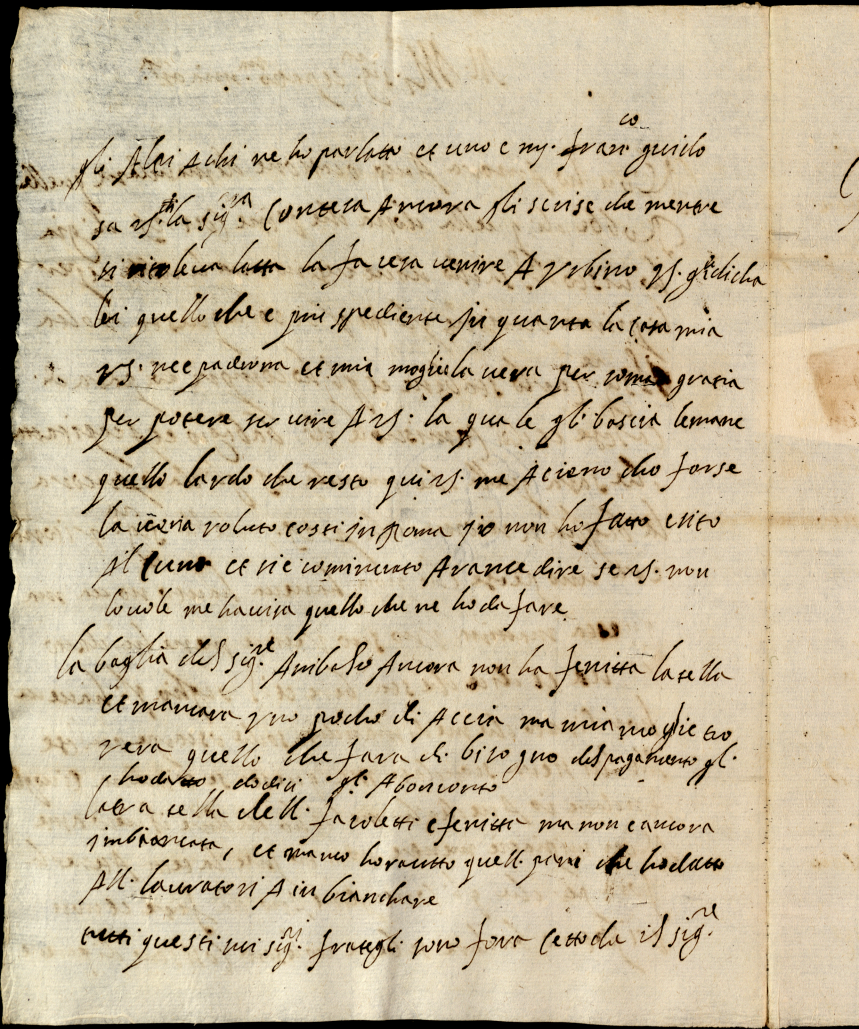 gli Altri Achi ne ho parlatto et uno e ms. franco guido
sa vs. la sigra Contesa Ancora gli scrise che mentre
si la facesa venire A Vrbino vs. gli dicha
lei quello che e piu spediente In quanto la casa mia
vs. ne e padrona et mia moglie la vera per soma gratia
per potere servire A vs. la quale gli bascia le mane
quello lardo che resto qui vs. me Acieno cho forse
la voluto costi in Roma io non ho fatto esito
Alcuno et sie cominciato A rancedire se vs. non
lo vole me havisa quello che ne ho da fare
la baglia del sigre Anibalo Ancora non ha fenitta la tella
et mancara vno pocho di Accia ma mia moglie tro
vera quello che fara di bisogno del pagamento gl.
ho datto dodici gl. A bonconto
latra tella dell. facoletti e fenitta ma non e ancora
imbiancata, et manco ho rautto quell. pani che ho datto
All. lauratori A in bianchare
tutti questi mi sigri frategli sono fora Cetto da il sigre